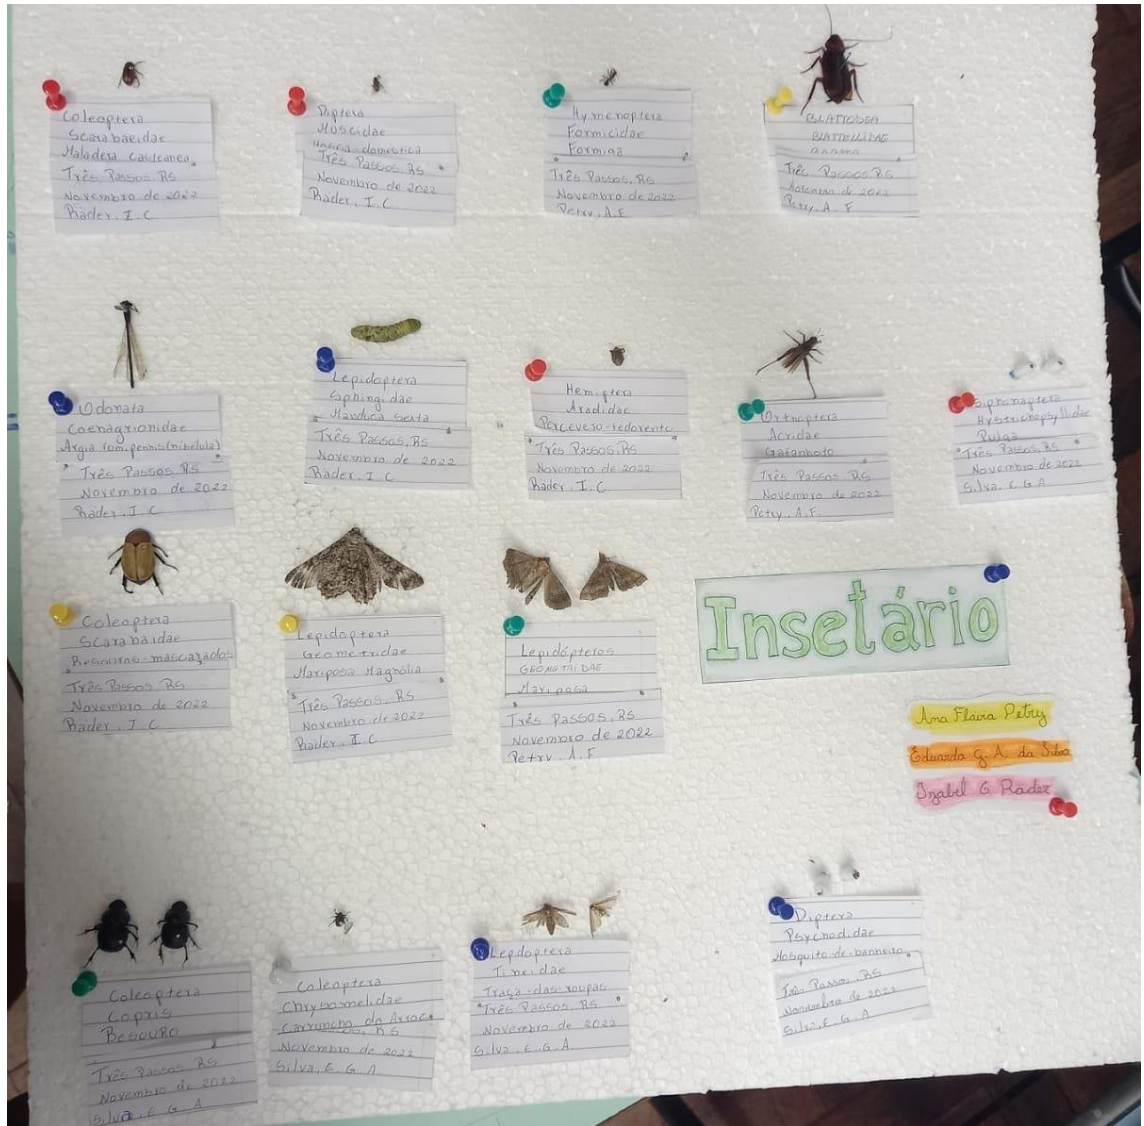 Coleoptera
Scarabaeidae
Maladera castanea
Três Passos, RS
Novembro de 2022
Räder, I. C
Diptera
Muscidae
Musca-domestica
Três Passos, RS
Novembro de 2022
Räder, I. C
Hymenoptera
Formicidae
Formiga
Três Passos, RS
Novembro de 2022
Petry, A.F
BLATTODEA
BLATTELLIDAE
Três Passos, RS
Novembro de 2022
Petry, A. F
Odonata
Coenagrionidae
Argia
Três Passos, RS
Novembro de 2022
Räder, I. C
Lepidoptera
Sphingidae
Manduca Sexta
Três Passos, RS
Novembro de 2022
Räder, I. C
Hemiptera
Aradidae
Perceveso-fedorento
Três Passos, RS
Novembro de 2022
Räder, I. C
Orthoptera
Acridae
Gafanhoto
Três Passos, RS
Novembro de 2022
Petry, A.F
Siphonaptera
Hystrichopsyllidae
Pulga
Três Passos, RS
Novembro de 2022
Silva, E. G. A
Coleoptera
Scarabaidae
Besouros-mascarados
Três Passos, RS
Novembro de 2022
Räder, I C
Lepidoptera
Geometridae
Mariposa Magnólia
Três Passos, RS
Novembro de 2022
Räder, I. C
Lepidópteros
GEOMETRIDAE
Mariposa
Três Passos, RS
Novembro de 2022
Petry, A. F
Insetário
Ana Flávia Petry
Eduarda G. A. da Silva
Izabel C Räder
Coleoptera
Copris
Besouro
Três Passos, RS
Novembro de 2022
Silva E G A
Coleoptera
Chrysomelidae
Carruncho do Arroz
RS
Novembro de 2022
Silva, E. G A
Lepdoptera
Tineidae
Traça-das-roupas
Três Passos, RS
Novembro de 2022
Silva, E. G. A
Diptera
Psychodidae
Mosquito-de-banheiro
Três Passos, RS
Novembro de 2022
Silva, E. G. A